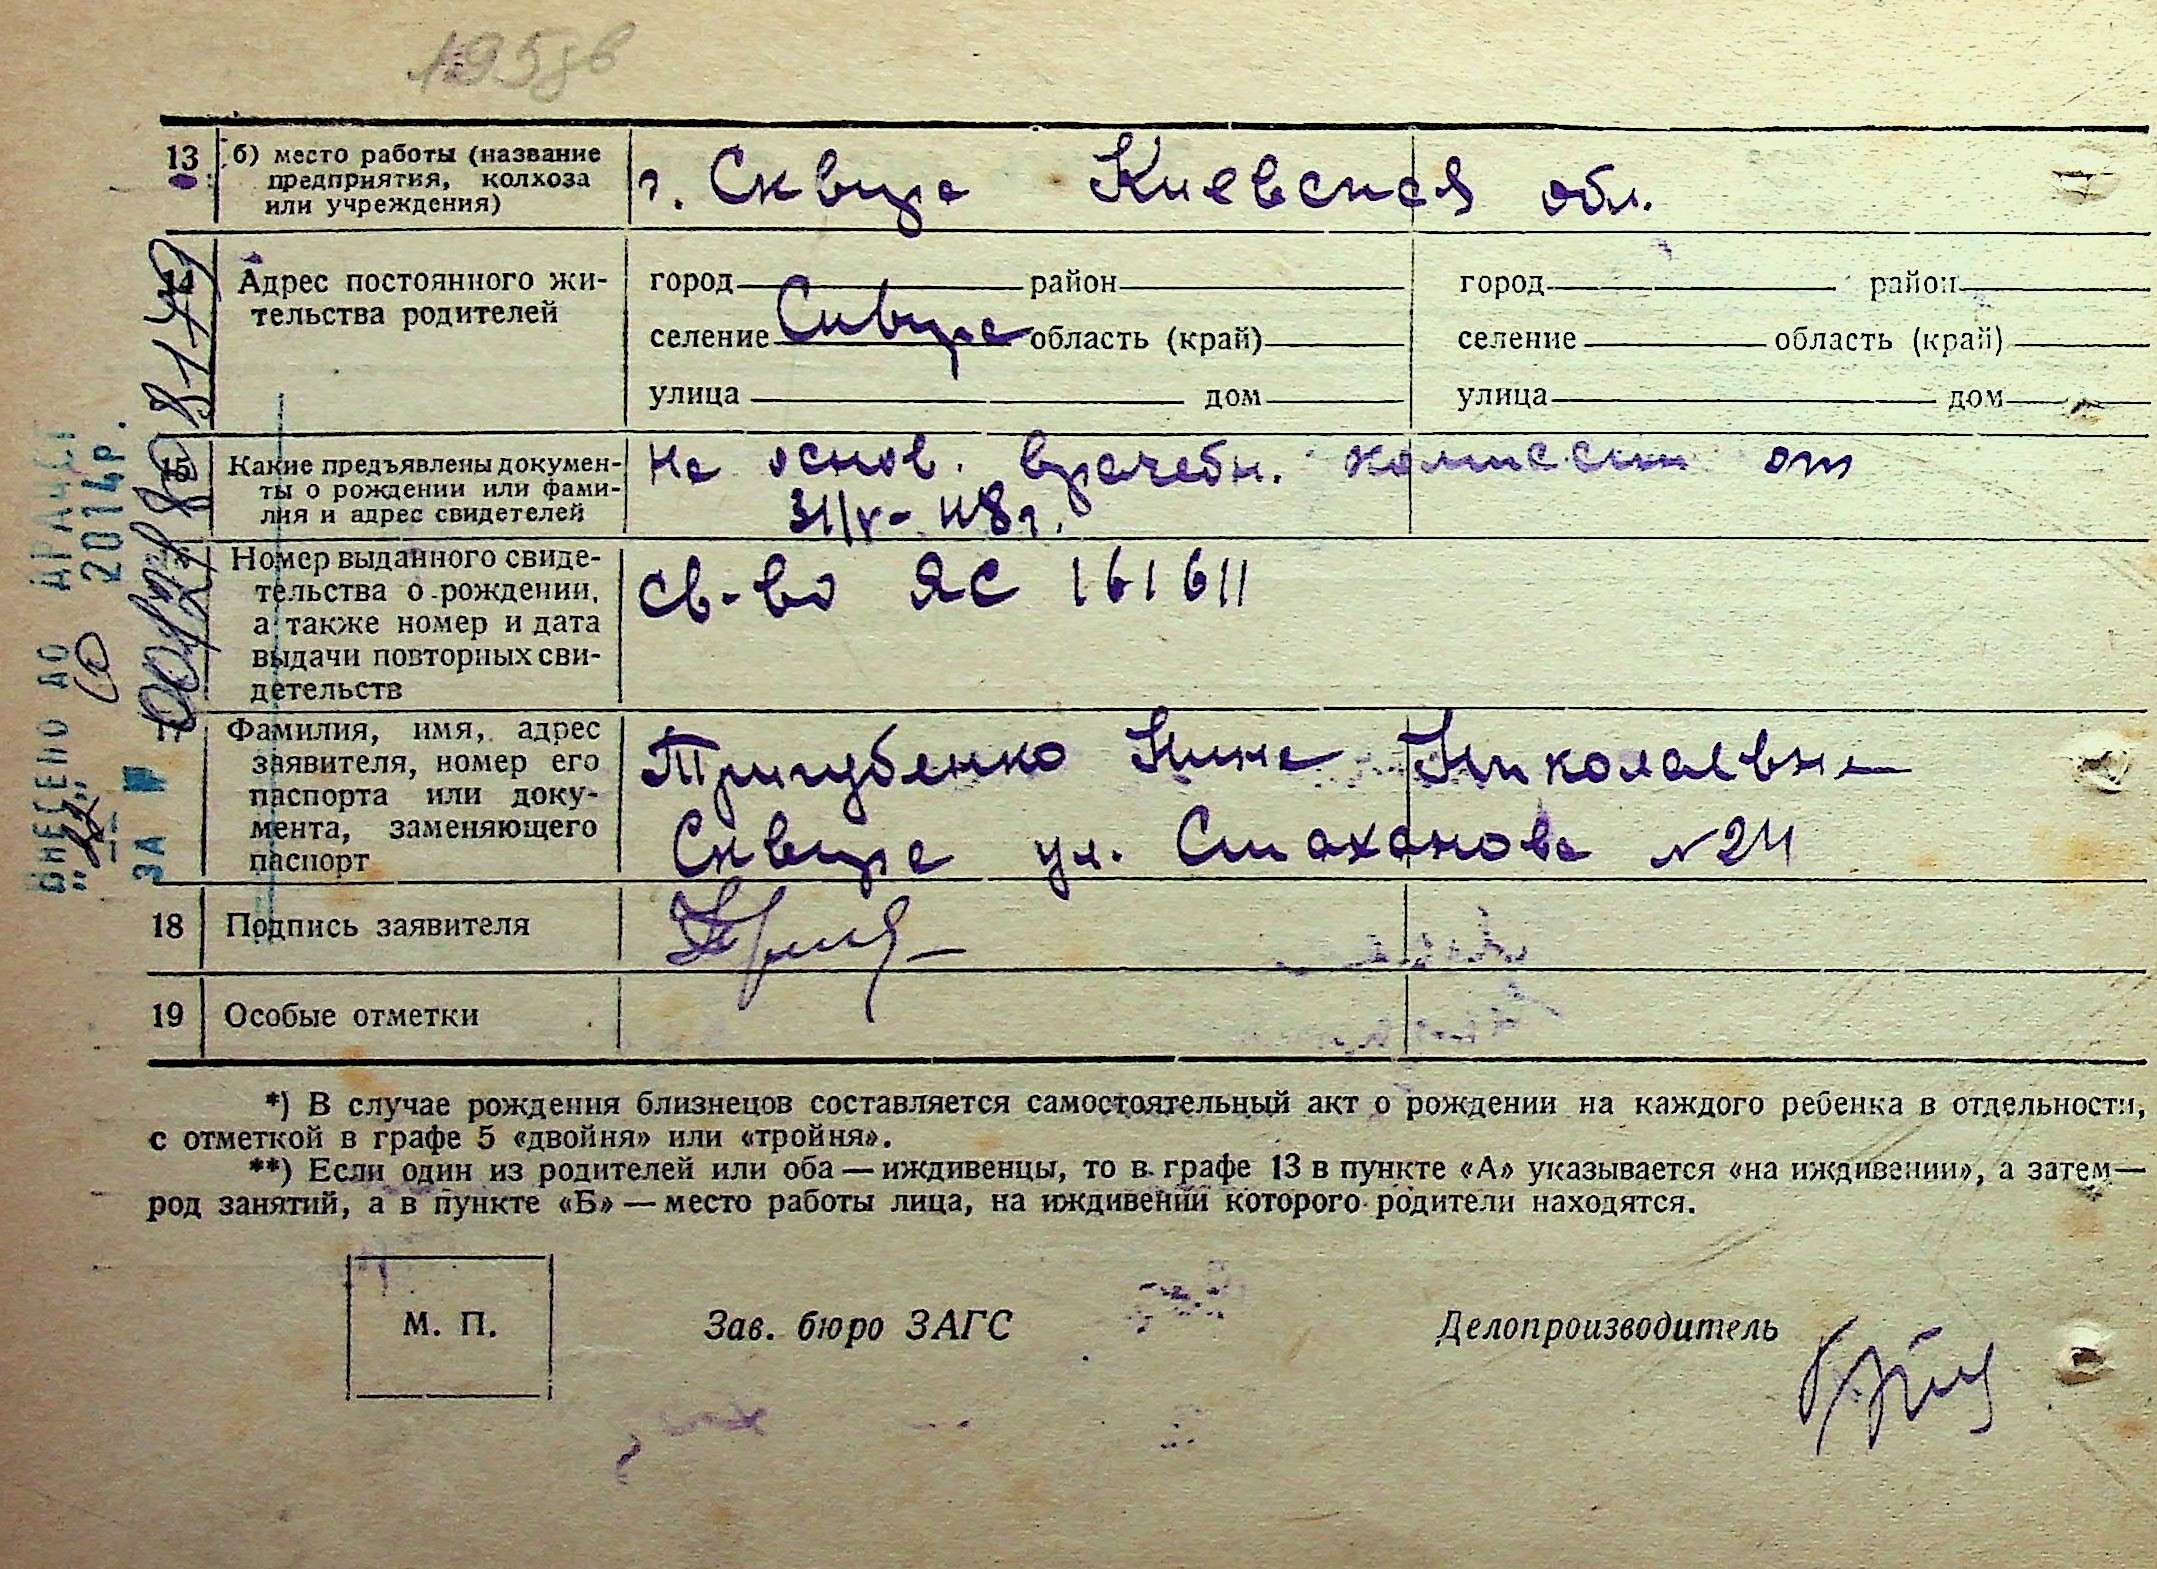 195зв
13 б) место работы (название предприятия, колхоза или учреждения) г. Сквира Киевская обл.
14 Адрес постоянного жительства родителей
город район город район
селение Сквира область (край) селение область (край)
улица дом улица дом
15 Какие предъявлены докумен-
ты о рождении или фами-
лия и адрес свидетелей
На основ. врачебн. комиссии от
31/V- 48 г.
Номер выданного свиде-
тельства о рождении,
а также номер и дата
выдачи повторных сви-
детельств
св-во ЯС 161611
17 Фамилия, имя, адрес
заявителя, номер его
паспорта или доку-
мента, заменяющего
паспорт
Тригубенко Нина Николаевна
Сквира ул. Стаханова №24
18 Подпись заявителя
19 Особые отметки
*) В случае рождения близнецов составляется самостоятельный акт о рождении на каждого ребенка в отдельности,
с отметкой в графе 5 «двойня» или «тройня».
**) Если один из родителей или оба — иждивенцы, то в графе 13 в пункте «А» указывается «на иждивении», а затем —
род занятий, а в пункте «Б» — место работы лица, на иждивении которого родители находятся.
М. П. Зав. бюро ЗАГС Делопроизводитель
ВНЕСЕНО ДО ДРАЦСГ
2014р.
ЗА №